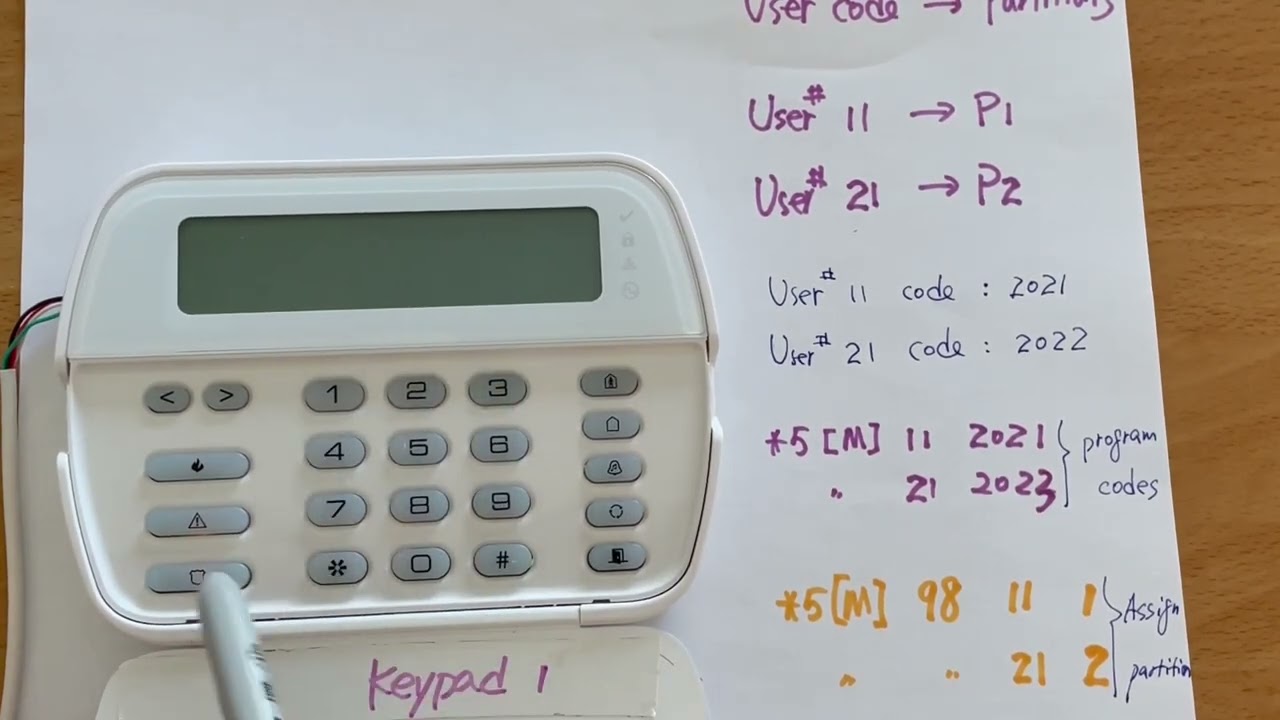 User code → Partitions
User# 11 → P1
User# 21 → P2
User# 11 code : 2021
User# 21 code : 2022
*5 [M] 11 2021 } program
" 21 2023 codes
*5 [M] 98 11 1 } Assign
" " 21 2 partition
< > 1 2 3
4 5 6
7 8 9
* 0 #
Keypad 1